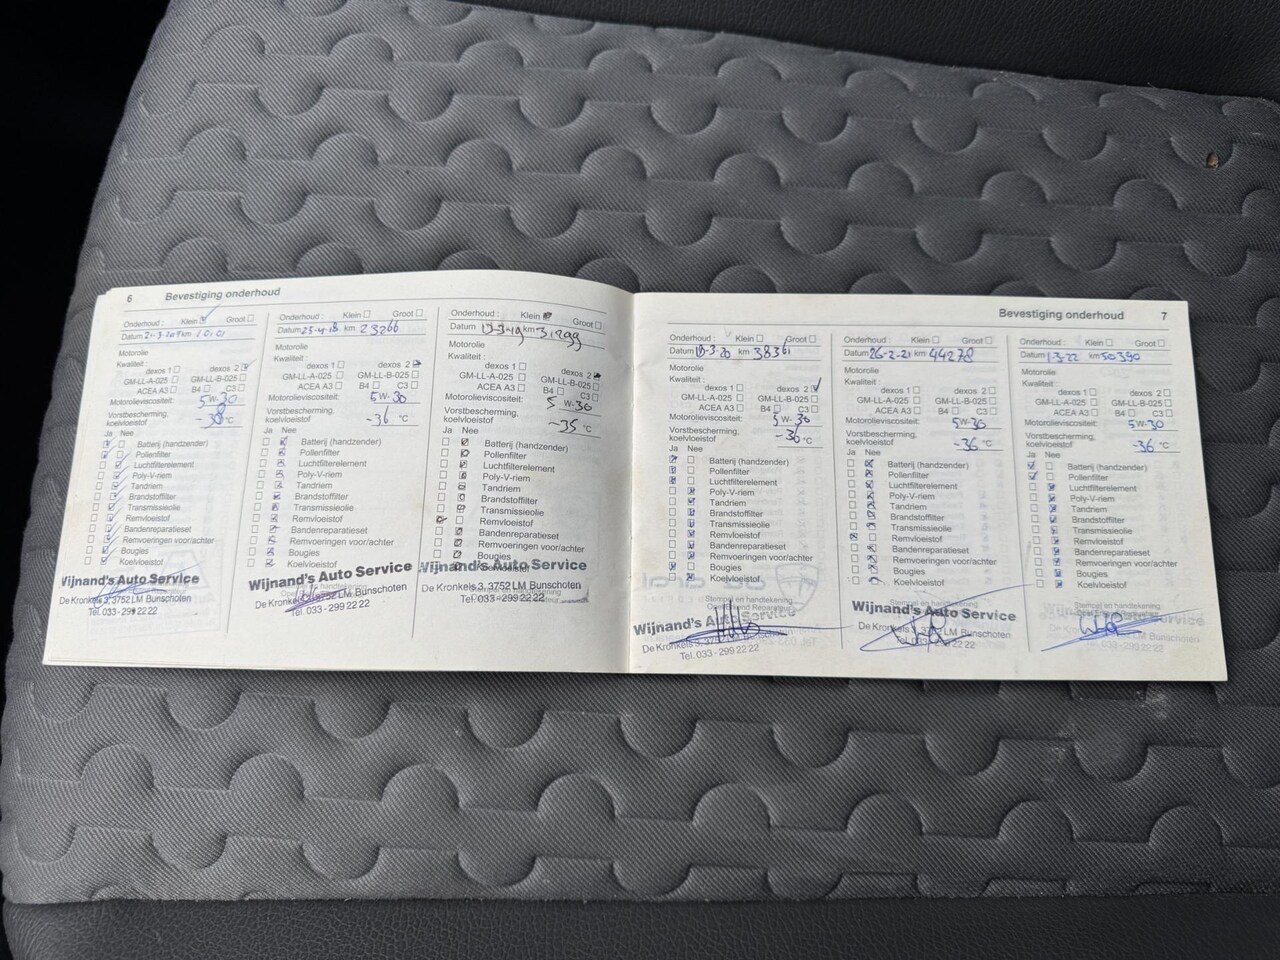 6 Bevestiging onderhoud
Onderhoud : Klein Groot
Datum km
Motorolie
Kwaliteit :
dexos 1 dexos 2
GM-LL-A-025 GM-LL-B-025
ACEA A3 B4 C3
Motorolieviscositeit: 5W-30
Vorstbescherming,
koelvloeistof -38 °C
Ja Nee
Batterij (handzender)
Pollenfilter
Luchtfilterelement
Poly-V-riem
Tandriem
Brandstoffilter
Transmissieolie
Remvloeistof
Bandenreparatieset
Remvoeringen voor/achter
Bougies
Koelvloeistof
Wijnand's Auto Service
De Kronkels 3, 3752 LM Bunschoten
Tel. 033 - 299 22 22
Onderhoud : Klein Groot
Datum 25-4-18 km 23266
Motorolie
Kwaliteit :
dexos 1 dexos 2
GM-LL-A-025 GM-LL-B-025
ACEA A3 B4 C3
Motorolieviscositeit: 5W-30
Vorstbescherming,
koelvloeistof -36 °C
Ja Nee
Batterij (handzender)
Pollenfilter
Luchtfilterelement
Poly-V-riem
Tandriem
Brandstoffilter
Transmissieolie
Remvloeistof
Bandenreparatieset
Remvoeringen voor/achter
Bougies
Koelvloeistof
Wijnand's Auto Service
De Kronkels 3, 3752 LM Bunschoten
Tel. 033 - 299 22 22
Onderhoud : Klein Groot
Datum km 31299
Motorolie
Kwaliteit :
dexos 1 dexos 2
GM-LL-A-025 GM-LL-B-025
ACEA A3 B4 C3
Motorolieviscositeit: 5 W-30
Vorstbescherming,
koelvloeistof -35 °C
Ja Nee
Batterij (handzender)
Pollenfilter
Luchtfilterelement
Poly-V-riem
Tandriem
Brandstoffilter
Transmissieolie
Remvloeistof
Bandenreparatieset
Remvoeringen voor/achter
Bougies
Wijnand's Auto Service
De Kronkels 3, 3752 LM Bunschoten
Tel. 033 - 299 22 22
Bevestiging onderhoud 7
Onderhoud : Klein Groot
Datum km 38361
Motorolie
Kwaliteit :
dexos 1 dexos 2
GM-LL-A-025 GM-LL-B-025
ACEA A3 B4 C3
Motorolieviscositeit: 5 W-30
Vorstbescherming,
koelvloeistof -36 °C
Ja Nee
Batterij (handzender)
Pollenfilter
Luchtfilterelement
Poly-V-riem
Tandriem
Brandstoffilter
Transmissieolie
Remvloeistof
Bandenreparatieset
Remvoeringen voor/achter
Bougies
Koelvloeistof
Stempel en handtekening
Wijnand's Auto Service
De Kronkels 3, 3752 LM Bunschoten
Tel. 033 - 299 22 22
Onderhoud : Klein Groot
Datum 26-2-21 km 44278
Motorolie
Kwaliteit :
dexos 1 dexos 2
GM-LL-A-025 GM-LL-B-025
ACEA A3 B4 C3
Motorolieviscositeit: 5W-30
Vorstbescherming,
koelvloeistof -36 °C
Ja Nee
Batterij (handzender)
Pollenfilter
Luchtfilterelement
Poly-V-riem
Tandriem
Brandstoffilter
Transmissieolie
Remvloeistof
Bandenreparatieset
Remvoeringen voor/achter
Bougies
Koelvloeistof
Stempel en handtekening
Wijnand's Auto Service
De Kronkels 3, 3752 LM Bunschoten
Tel. 033 - 299 22 22
Onderhoud : Klein Groot
Datum 1-3-22 km 50390
Motorolie
Kwaliteit :
dexos 1 dexos 2
GM-LL-A-025 GM-LL-B-025
ACEA A3 B4 C3
Motorolieviscositeit: 5W-30
Vorstbescherming,
koelvloeistof -36 °C
Ja Nee
Batterij (handzender)
Pollenfilter
Luchtfilterelement
Poly-V-riem
Tandriem
Brandstoffilter
Transmissieolie
Remvloeistof
Bandenreparatieset
Remvoeringen voor/achter
Bougies
Koelvloeistof
Stempel en handtekening
Wijnand's Auto Service
De Kronkels 3, 3752 LM Bunschoten
Tel. 033 - 299 22 22